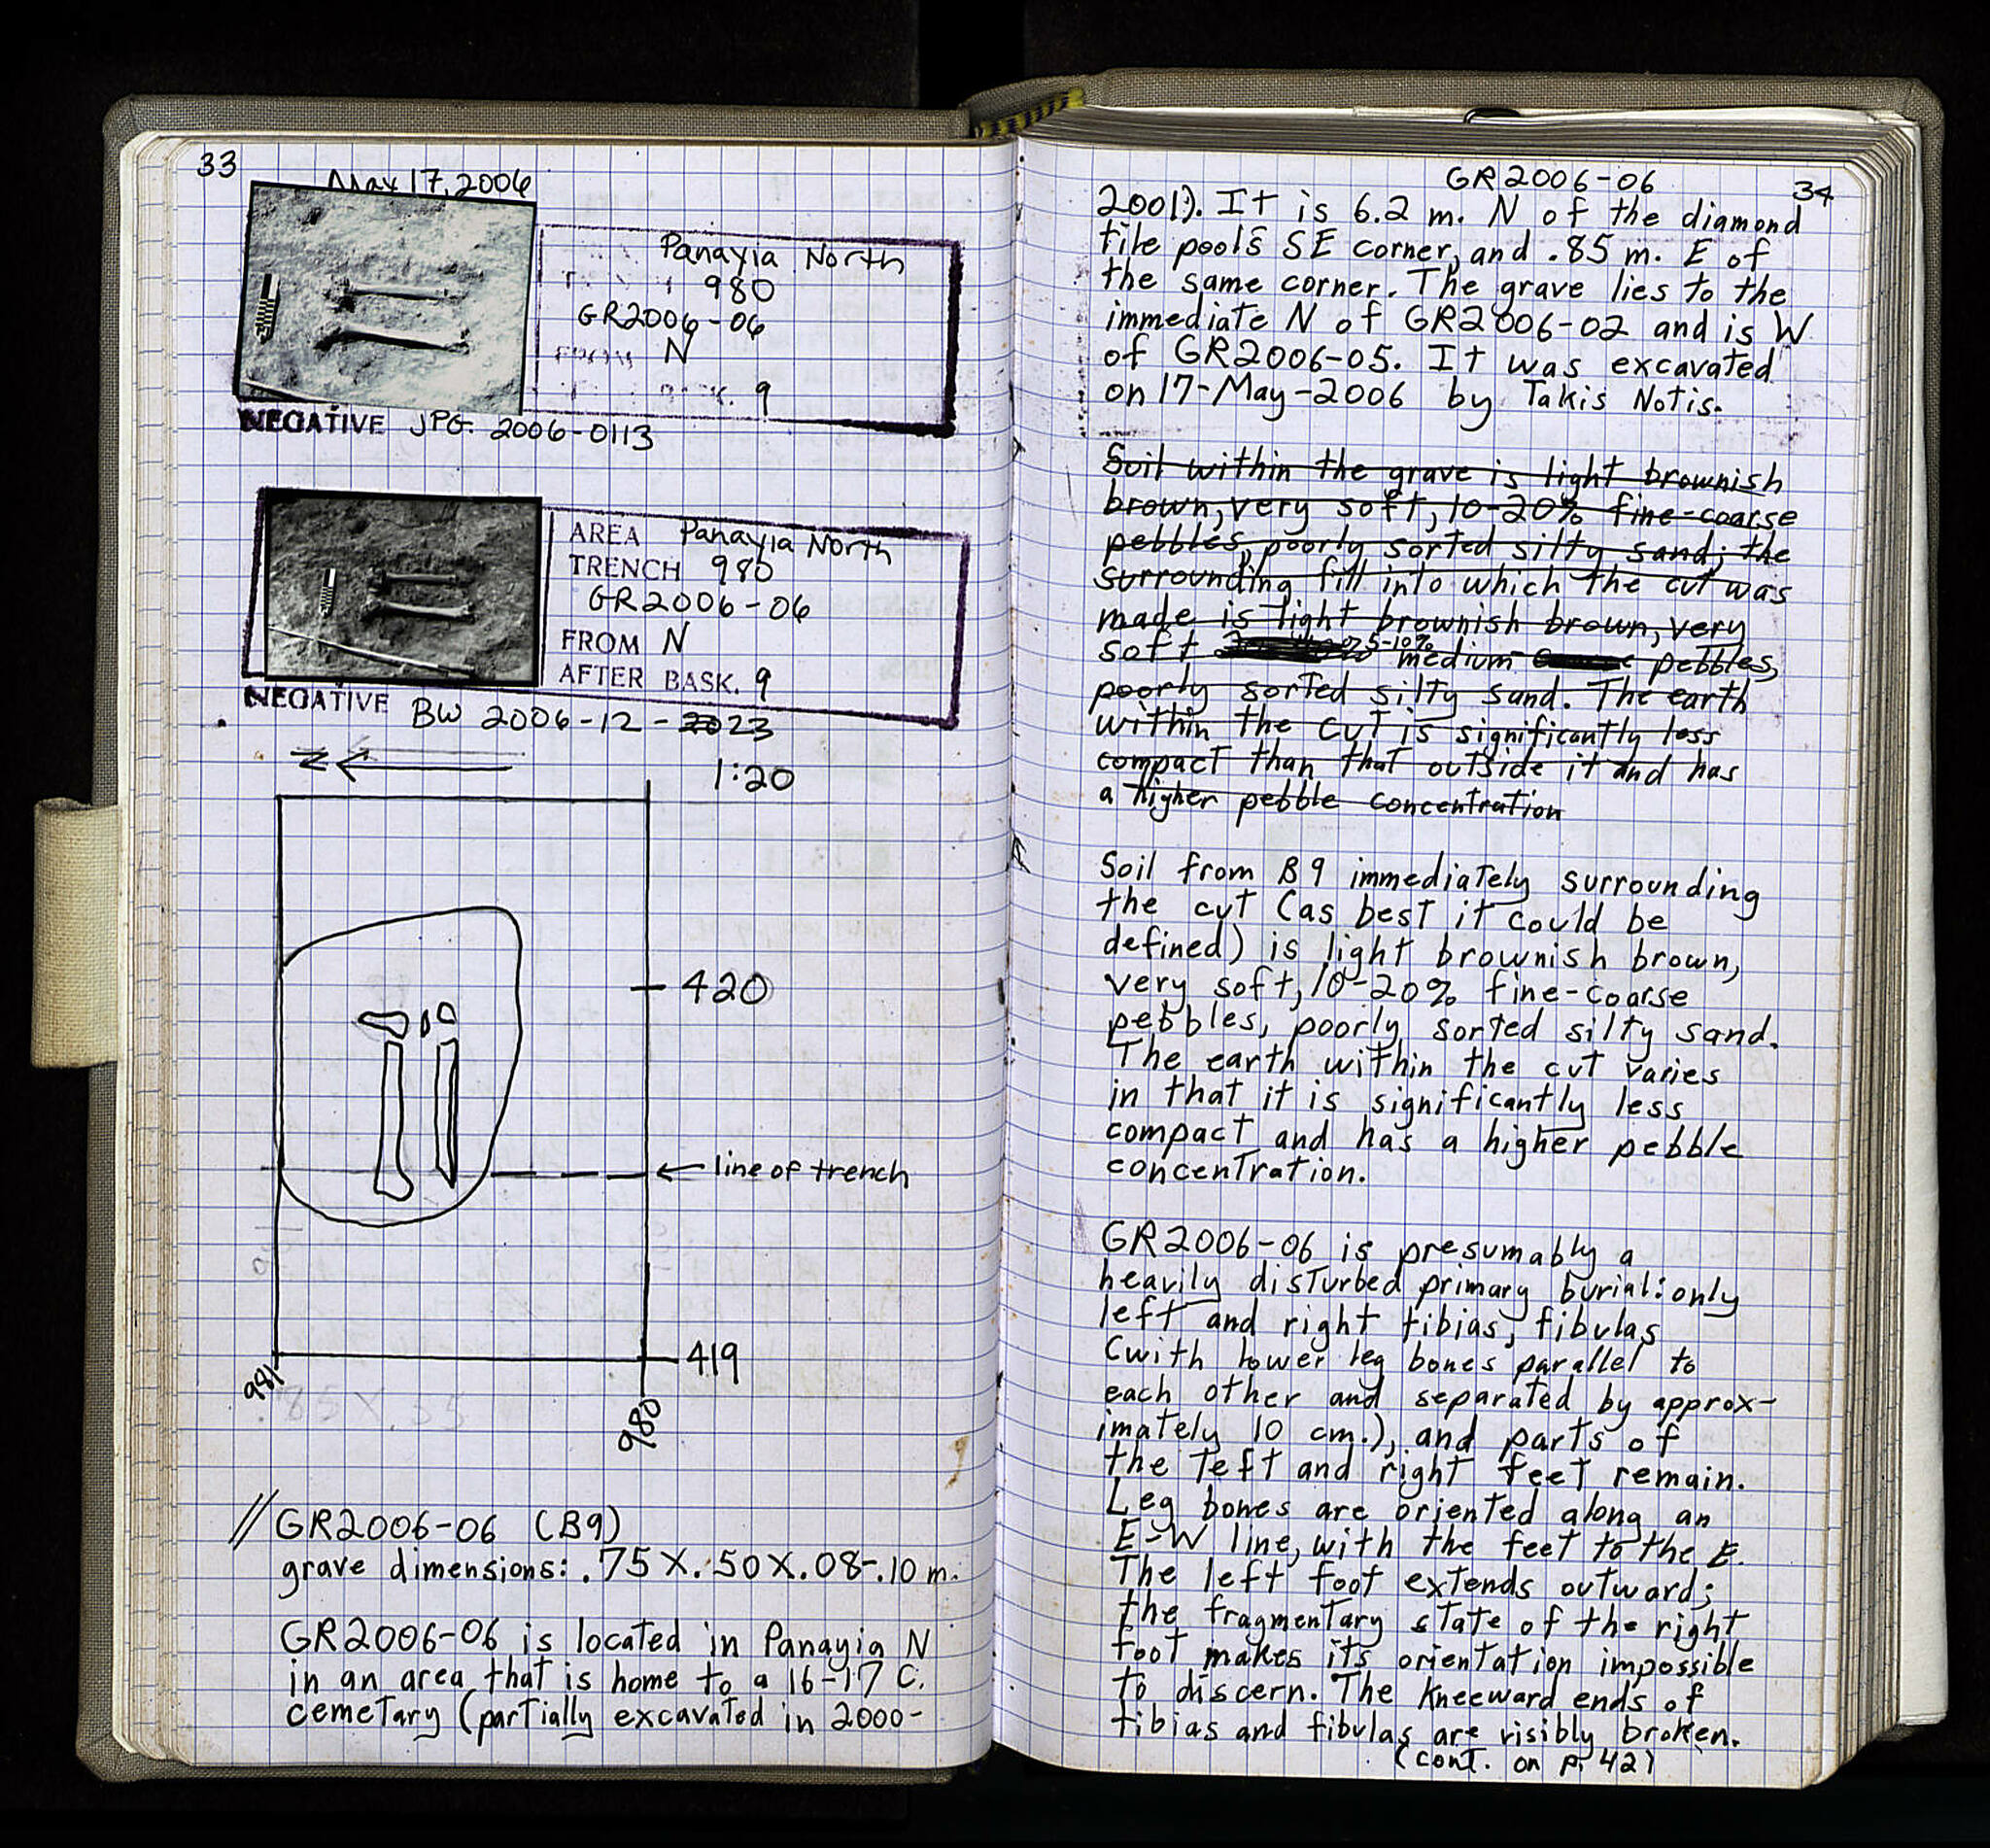 33
May 17, 2006
Panayia North
980
GR2006-06
FROM N
BASK. 9
NEGATIVE JPG. 2006-0113
AREA Panayia North
TRENCH 980
GR2006-06
FROM N
AFTER BASK. 9
NEGATIVE BW 2006-12-2023
N
1:20
420
line of trench
419
981
980
.85 X .55
// GR2006-06 (B9)
grave dimensions: .75 X .50 X .08-.10 m.
GR2006-06 is located in Panayia N
in an area that is home to a 16-17 C.
cemetary (partially excavated in 2000-
GR2006-06
34
2001). It is 6.2 m. N of the diamond
tile pool's SE corner, and .85 m. E of
the same corner. The grave lies to the
immediate N of GR2006-02 and is W
of GR2006-05. It was excavated
on 17-May-2006 by Takis Notis.
Soil within the grave is light brownish
brown, very soft, 10-20% fine-coarse
pebbles, poorly sorted silty sand; the
surrounding fill into which the cut was
made is light brownish brown, very
soft 5-10% medium pebbles,
poorly sorted silty sand. The earth
within the cut is significantly less
compact than that outside it and has
a higher pebble concentration
Soil from B9 immediately surrounding
the cut (as best it could be
defined) is light brownish brown,
very soft, 10-20% fine-coarse
pebbles, poorly sorted silty sand.
The earth within the cut varies
in that it is significantly less
compact and has a higher pebble
concentration.
GR2006-06 is presumably a
heavily disturbed primary burial: only
left and right tibias, fibulas
(with lower leg bones parallel to
each other and separated by approx-
imately 10 cm.), and parts of
the left and right feet remain.
Leg bones are oriented along an
E-W line, with the feet to the E.
The left foot extends outward;
the fragmentary state of the right
foot makes its orientation impossible
to discern. The kneeward ends of
tibias and fibulas are visibly broken.
(cont. on p. 42)